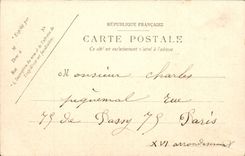 RÉPUBLIQUE FRANÇAISE
CARTE POSTALE
Ce côté est exclusivement réservé à l'adresse
Monsieur Charles
piquemal rue
75 de Passy 75 Paris
XVI arrondissement